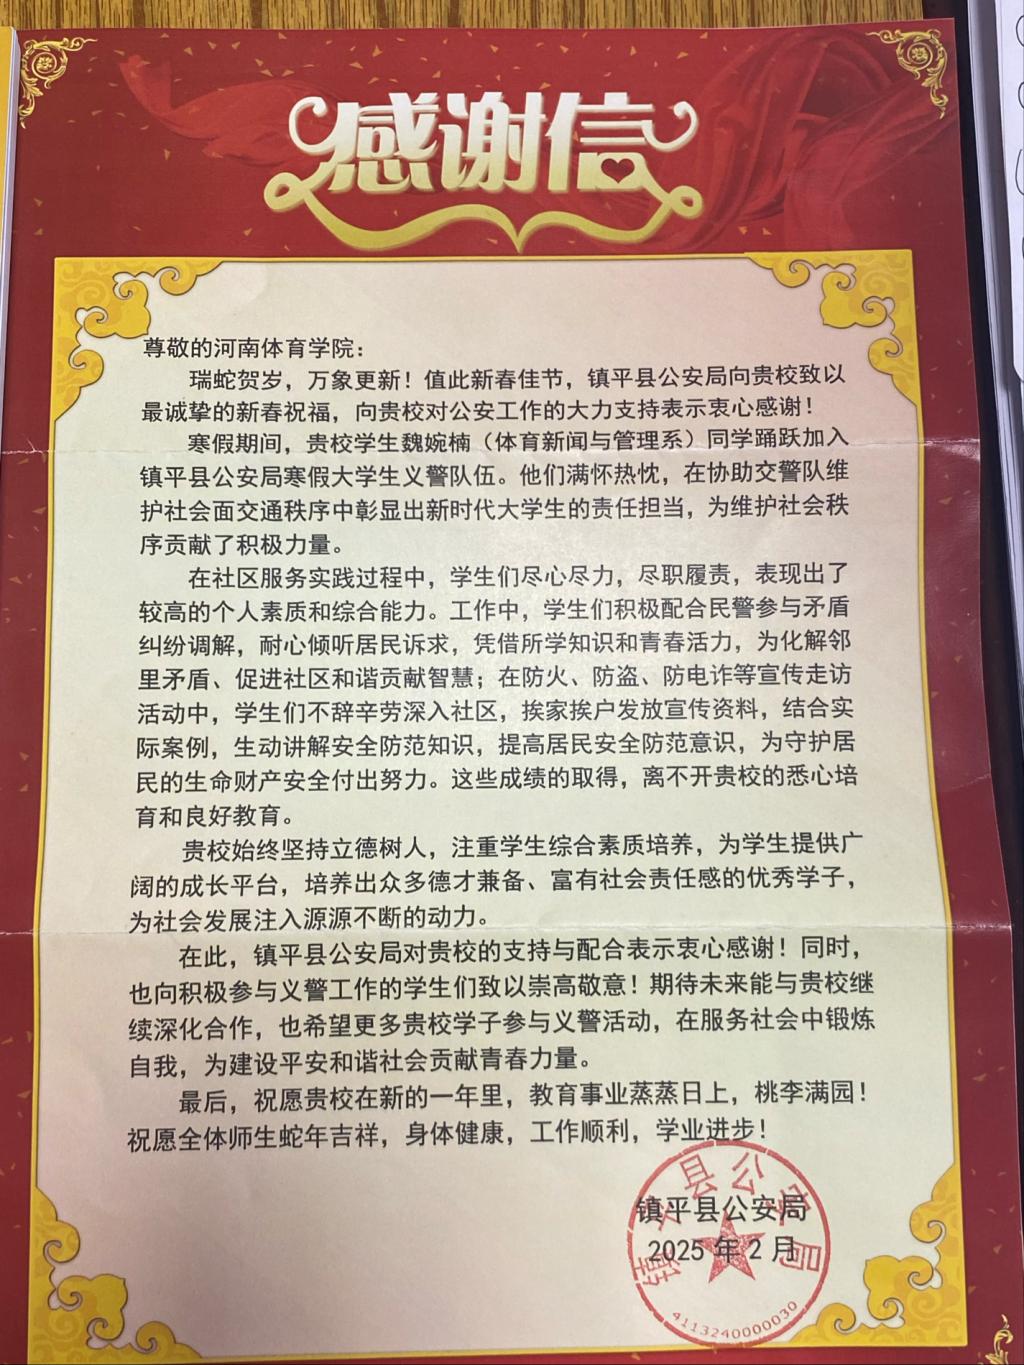 感谢信
尊敬的河南体育学院：
瑞蛇贺岁，万象更新！值此新春佳节，镇平县公安局向贵校致以
最诚挚的新春祝福，向贵校对公安工作的大力支持表示衷心感谢！
寒假期间，贵校学生魏婉楠（体育新闻与管理系）同学踊跃加入
镇平县公安局寒假大学生义警队伍。他们满怀热忱，在协助交警队维
护社会面交通秩序中彰显出新时代大学生的责任担当，为维护社会秩
序贡献了积极力量。
在社区服务实践过程中，学生们尽心尽力，尽职履责，表现出了
较高的个人素质和综合能力。工作中，学生们积极配合民警参与矛盾
纠纷调解，耐心倾听居民诉求，凭借所学知识和青春活力，为化解邻
里矛盾、促进社区和谐贡献智慧；在防火、防盗、防电诈等宣传走访
活动中，学生们不辞辛劳深入社区，挨家挨户发放宣传资料，结合实
际案例，生动讲解安全防范知识，提高居民安全防范意识，为守护居
民的生命财产安全付出努力。这些成绩的取得，离不开贵校的悉心培
育和良好教育。
贵校始终坚持立德树人，注重学生综合素质培养，为学生提供广
阔的成长平台，培养出众多德才兼备、富有社会责任感的优秀学子，
为社会发展注入源源不断的动力。
在此，镇平县公安局对贵校的支持与配合表示衷心感谢！同时，
也向积极参与义警工作的学生们致以崇高敬意！期待未来能与贵校继
续深化合作，也希望更多贵校学子参与义警活动，在服务社会中锻炼
自我，为建设平安和谐社会贡献青春力量。
最后，祝愿贵校在新的一年里，教育事业蒸蒸日上，桃李满园！
祝愿全体师生蛇年吉祥，身体健康，工作顺利，学业进步！
镇平县公安局
2025年2月
镇平县公安局
4113240000030